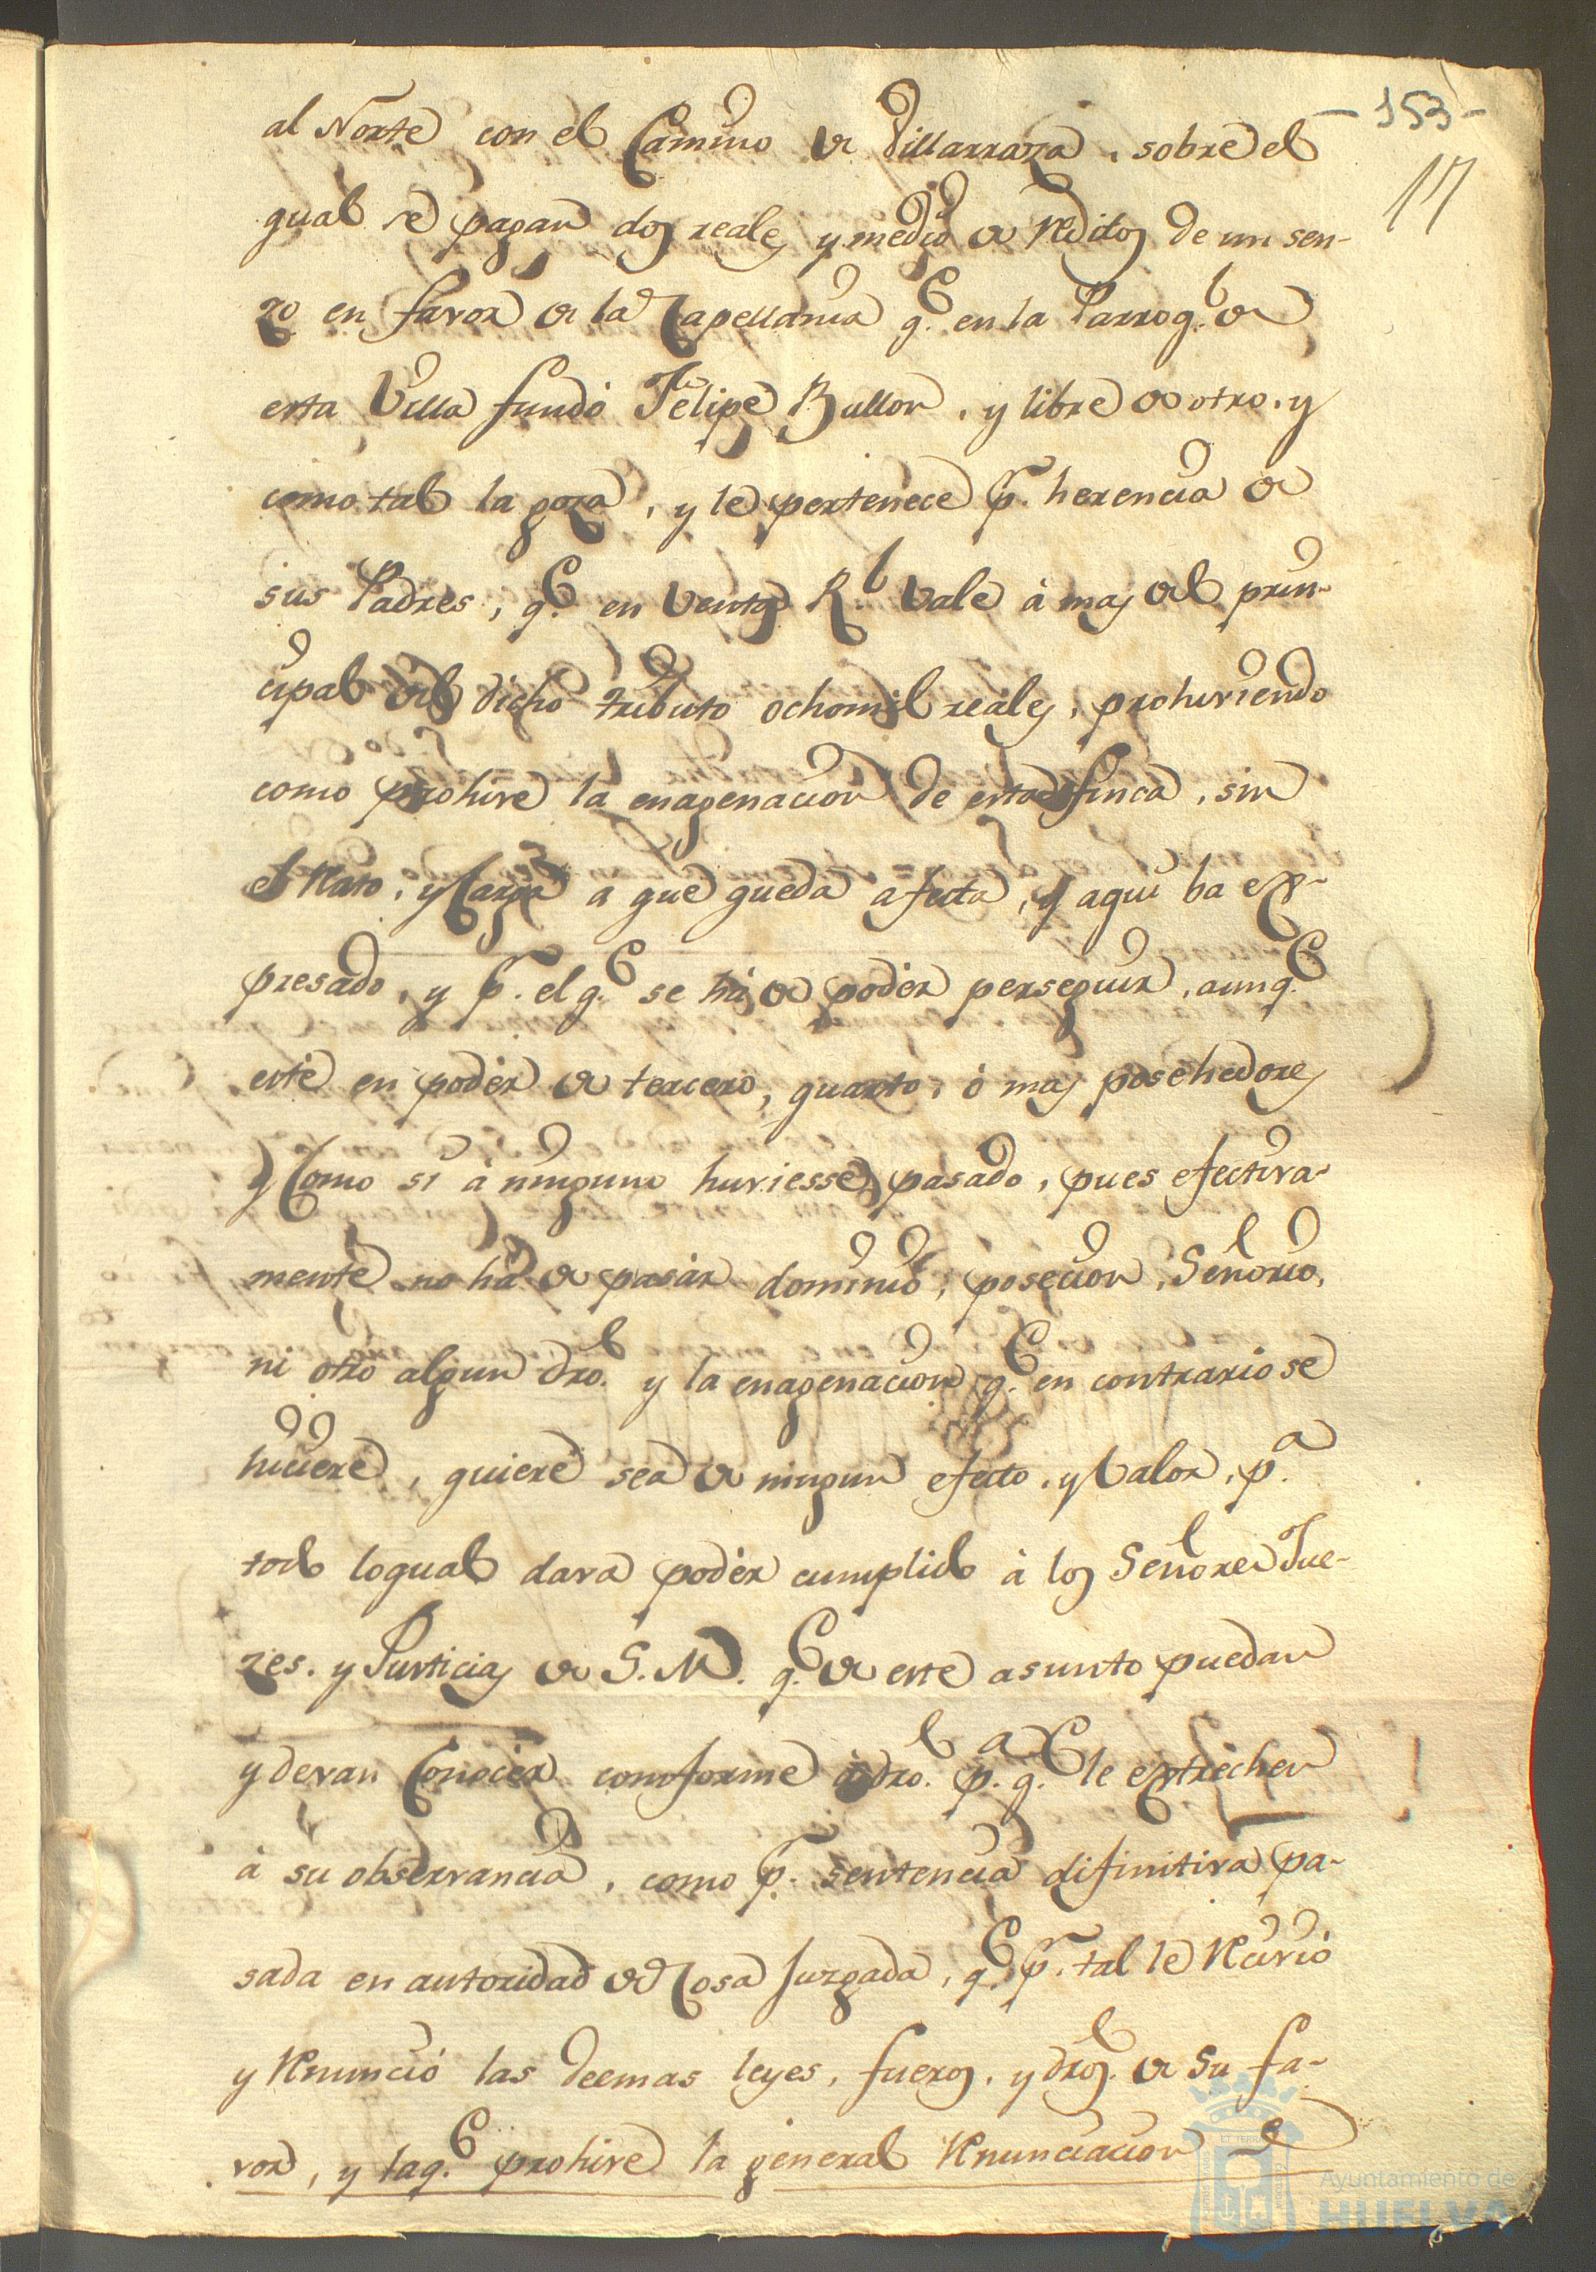 - 153 -
17
al Norte con el Camino de Villarrasa, sobre el
qual se pagan dos reales y medio de Reditos de un sen-
zo en favor de la Capellania q.e en la Parroq.l de
esta Villa fundó Felipe Bullon, y libre de otro, y
como tal la goza, y le pertenece p.r herencia de
sus Padres, q.e en Venta R.l Vale à mas del prin-
cipal del dicho tributo ochomil reales, prohiviendo
como prohive la enagenacion de esta finca, sin
el , y Carga a que queda afecta, y aqui ba ex-
presado, y p.r el q.e se há de poder perseguir, aunq.e
esté en poder de tercero, quarto, ó mas posehedores
y Como si à ninguno huviesse pasado, pues efectiva-
mente no há de pasar dominio, posecion, Señorio,
ni otro algun dro. y la enagenacion q.e en contrario se
hiciere, quiere sea de ningun efecto, y Valor, p.a
todo loqual dava poder cumplido à los Señores Jue-
zes, y Justicias de S. M. q.e de este asunto puedan
y devan Conocer conforme à dro. p.a q.e le extrechen
à su observancia, como p.r sentencia difinitiva pa-
sada en autoridad de Cosa Juzgada, q.e p.r tal le Recivió
y Renunció las deemas leyes, fueros, y dros. de su fa-
vor, y laq.e prohive la general Renunciacion
Ayuntamiento de
HUELVA